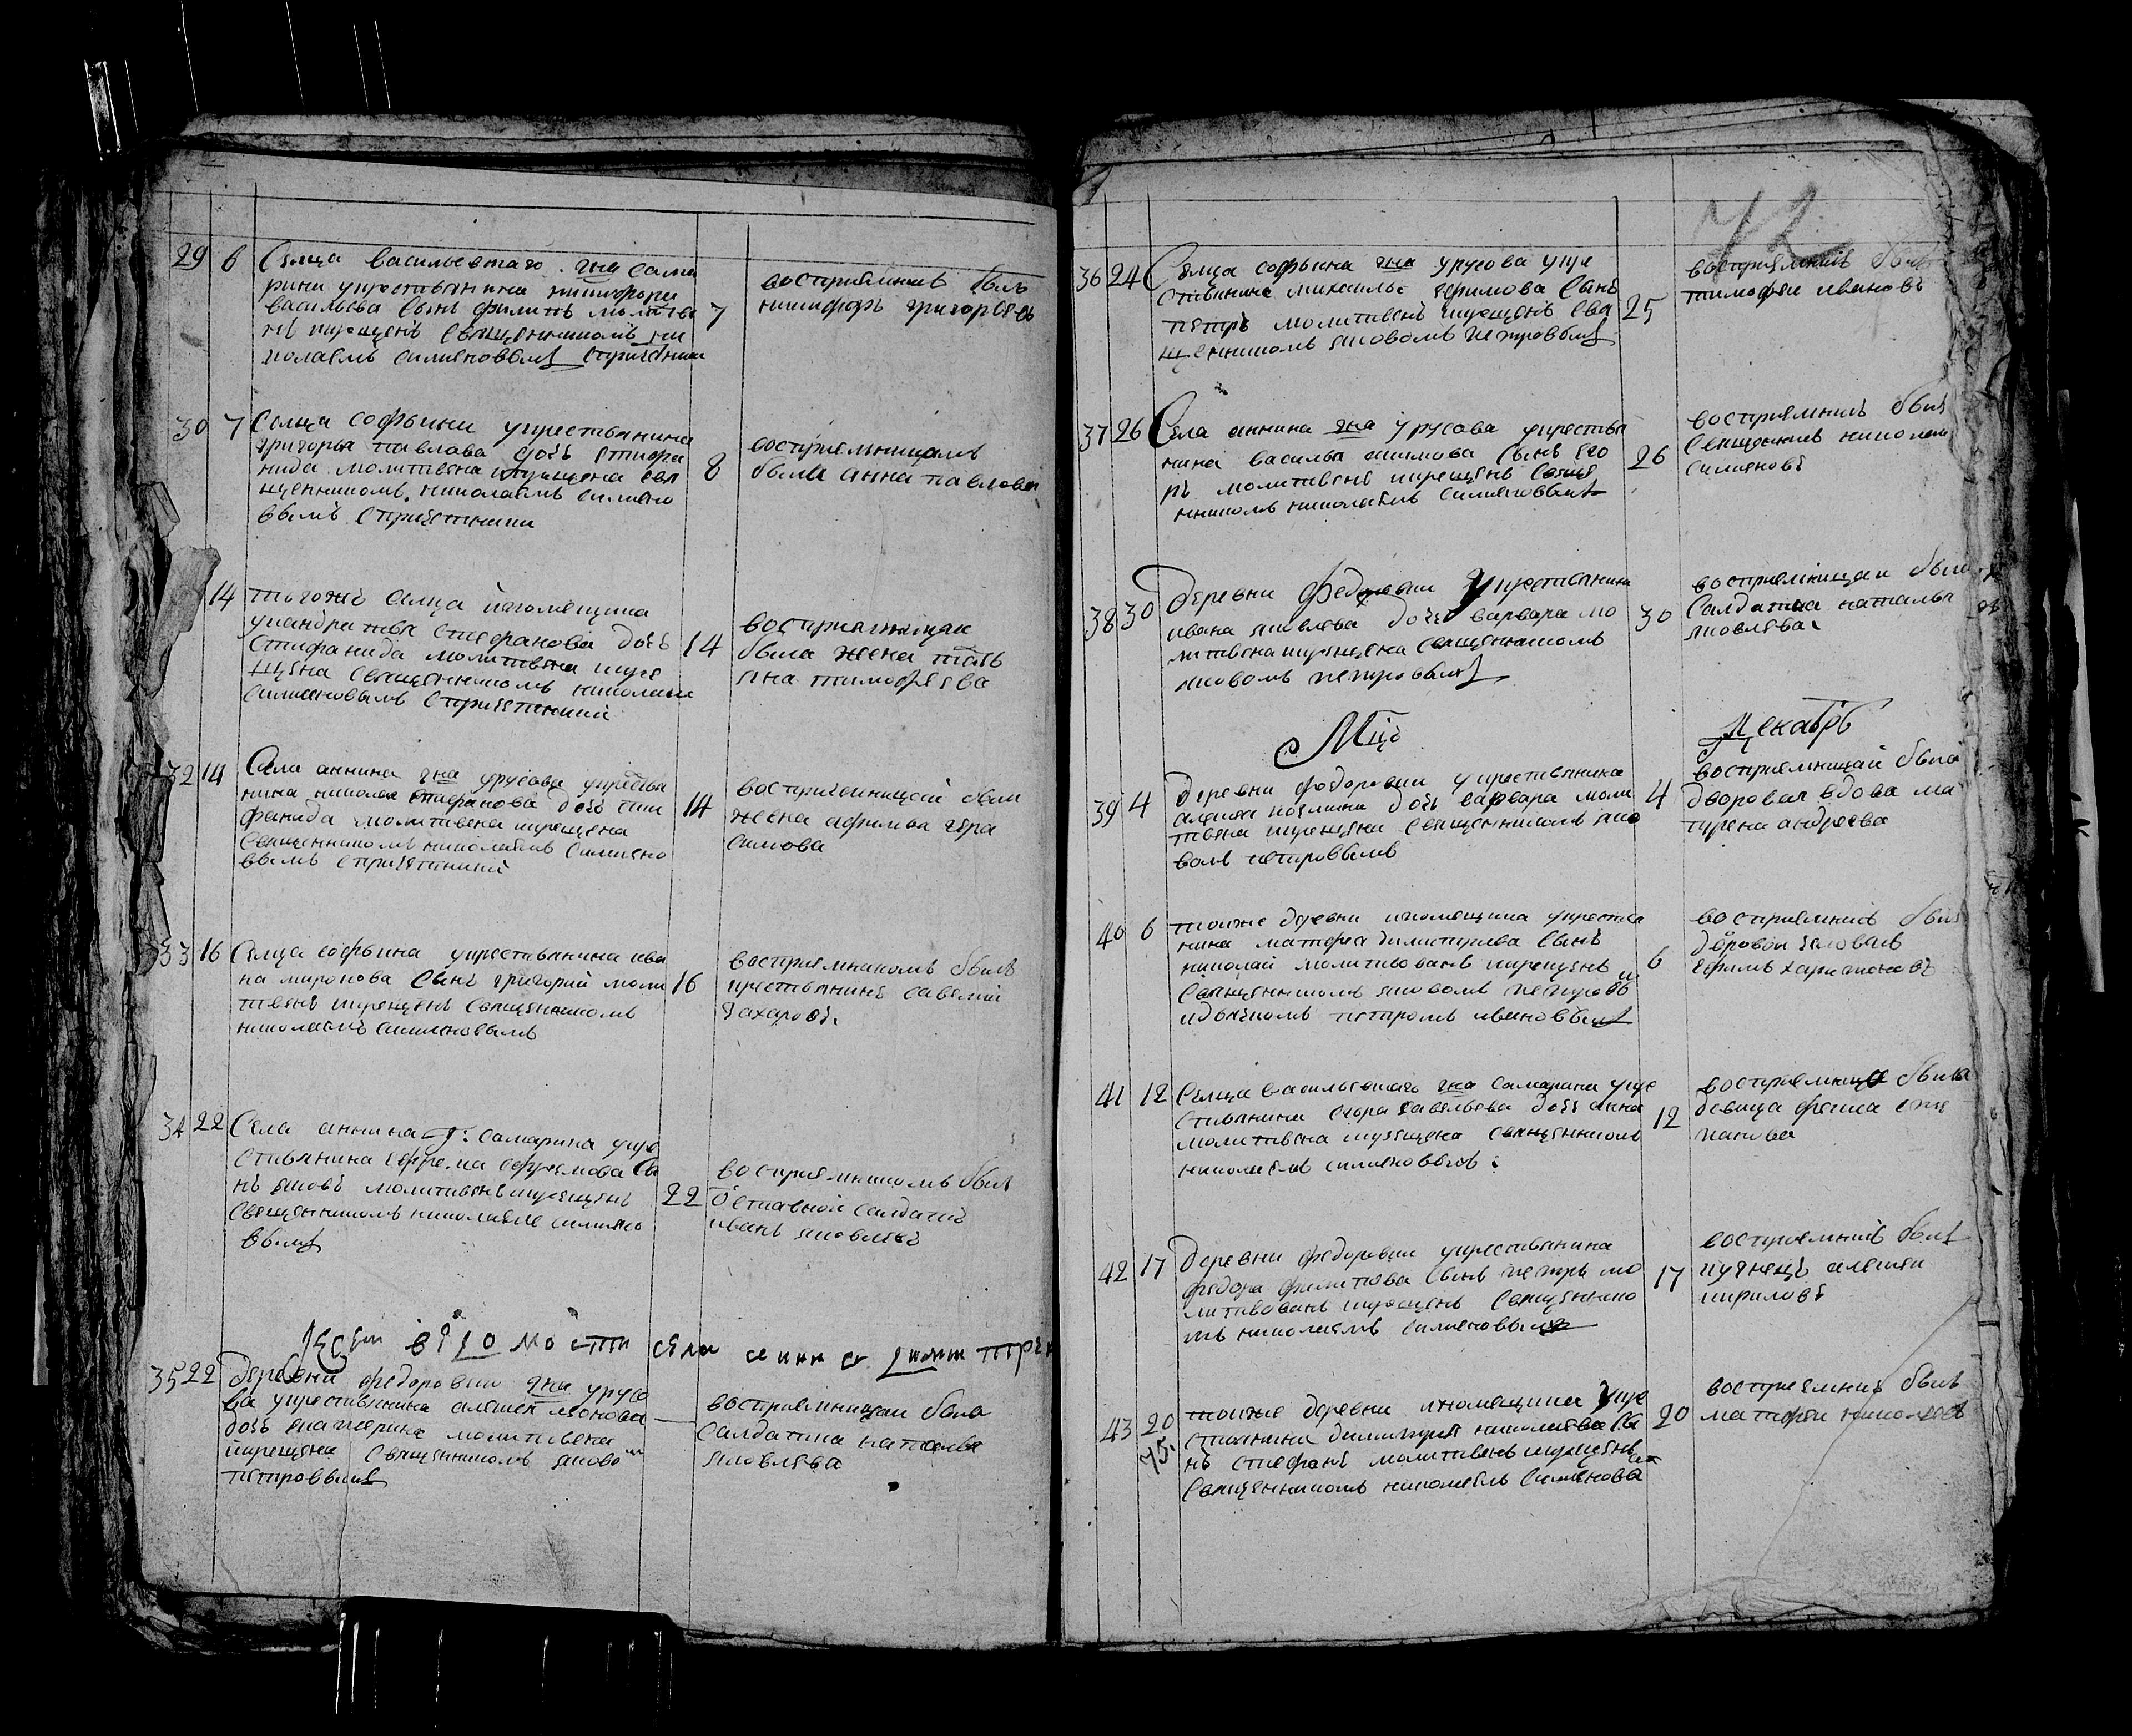 29 6 Селца васильевскаго гна сама
рина ꙋкрестьянина никифора
васильева сынъ филипъ молитве
нъ икрещенъ священникомъ ни
колаемъ симионовымъ спричетники
7 восприемникъ былъ
никифоръ григорьевъ
30 7 Селца софьина укрестьянина
григорья павлова дочь епифа
нида молитвена икрещена свя
щенникомъ николаемъ симионо
вымъ спричетники
8 восприемницею
была анна павлова
14 тогожъ селца ипомещика
укандратья стефанова дочь
епифанида молитвена икре
щена священникомъ николаемъ
симионовымъ спричетники
14 восприемницею
была жена тать
яна тимофеева
32 14 Села аннина гна урусова укрестья
нина николая епифанова дочь епи
фанида молитвена икрещена
священникомъ николаемъ симионо
вымъ спричетники
14 восприемницей была
жена афимья гера
симова
33 16 Селца софьина укрестьянина ива
на миронова сынъ григорий моли
твенъ икрещенъ священникомъ
николаемъ симионовымъ
16 восприемникомъ былъ
крестьянинъ савелий
захаровъ
34 22 Села аннина г. самарина укре
стьянина ефрема ефремова сы
нъ яковъ молитвенъ икрещенъ
священникомъ николаемъ симионо
вымъ
22 восприемникомъ былъ
отставной салдатъ
иванъ яковлевъ
села
35 22 Деревни федоровки гна урусо
ва укрестьянина алексея
дочь екатерина молитвена
икрещена священникомъ яковомъ
петровымъ
восприемницей была
салдатка наталья
яковлева
72
36 24 Селца софьина гна урусова укре
стьянина михаилы ефимова сынъ
петръ молитвенъ икрещенъ свя
щенникомъ яковомъ петровымъ
25 восприемникъ былъ
тимофей ивановъ
37 26 Села аннина гна урусова укрестья
нина василья акимова сынъ его
ръ молитвенъ икрещенъ свяще
нникомъ николаемъ симионовымъ
26 восприемникъ былъ
священникъ николай
симионовъ
38 30 Деревни федоровки укрестьянина
ивана яковлева дочь варвара мо
литвена икрещена священникомъ
яковомъ петровымъ
30 восприемницей была
салдатка наталья
яковлева
Мцъ Декабрь
39 4 Деревни федоровки укрестьянина
алексея дочь варвара моли
твена икрещена священникомъ яко
вомъ петровымъ
4 восприемницей была
дворовая вдова ма
трена андреева
40 6 тоиже деревни ипомещика укрестья
нина матфея димитриева сынъ
николай молитвованъ икрещенъ
священникомъ яковомъ петровы
идьячкомъ петромъ ивановымъ
6 восприемникъ былъ
дворовой человекъ
ефимъ харитоновъ
41 12 Селца васильевскаго гна самарина укре
стьянина егора савельева дочь анна
молитвена икрещена священникомъ
николаемъ симионовымъ
12 восприемница была
девица фекла сте
панова
42 17 Деревни федоровки укрестьянина
федора филипова сынъ петръ мо
литвованъ икрещенъ священнико
мъ николаемъ симионовымъ
17 восприемникъ былъ
кузнецъ алексей
кириловъ
43 20 тоиже деревни ипомещика укре
стьянина димитрия николаева сы
нъ стефанъ молитвенъ икрещенъ
священникомъ николаемъ симионовы
20 восприемникъ былъ
матфей николаевъ
75.